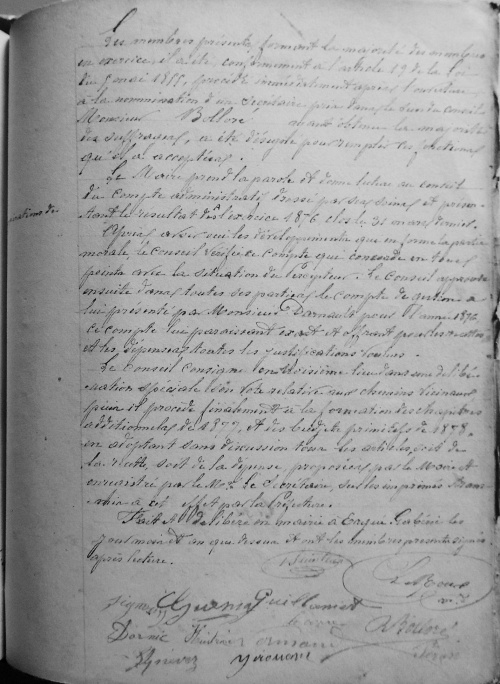 Les membres présents formant la majorité des membres
en exercice, il a été, conformément à l'article 19 de la loi
du 5 mai 1855, procédé immédiatement après l'ouverture
à la nommination d'un Secrétaire pris dans le sein du conseil
Monsieur Bolloré ayant obtenu la majorité
des suffrages, a été désigné pour remplir ces fonctions
qu'il a acceptées.
Le Maire prend la parole et donne lecture au conseil
du compte administratif dressé par ses soins et présen-
tant le résultat de l'exercice 1876 clos le 31 mars dernier.
Après avoir les développements que en forme la partie
morale, le Conseil vérifie ce compte que concorde en tous
points avec la situation du Receveur. Le Conseil approuve
ensuite dans toutes ses parties le compte de gestion à
lui présenté par Monsieur Darnault pour l'année 1876
ce compte lui paraissant exact et offrant pour les recettes
et les dépenses toutes les justifications voulues.
Le Conseil consigne en troisième lieu dans une déli bé-
ration spéciale son vote relative aux chemins vicinaux
puis il procède finalement à la formation des chapitres
additionnels de 1877, et des budgets primitifs de 1878,
en adoptant sans discussion tous les articles, soit de
la recette, soit de la dépense, proposés par le Maire et
enregistrés par le Secrétaire, sur les imprimés trans-
mis à cet effet par la Préfecture.
Fait et délibéré en mairie à Ergué-Gabéric les
jour mois et an que dessus et ont les membres présents signé
après lecture.
Le Maire
Signé
Guillamet
R Bolloré